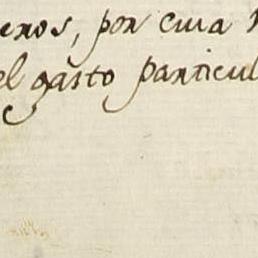 enos, por cuia
el gasto particul